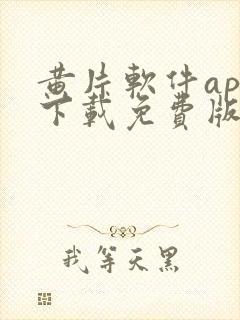 黄片軟件ap
下載免費版
我等天黑